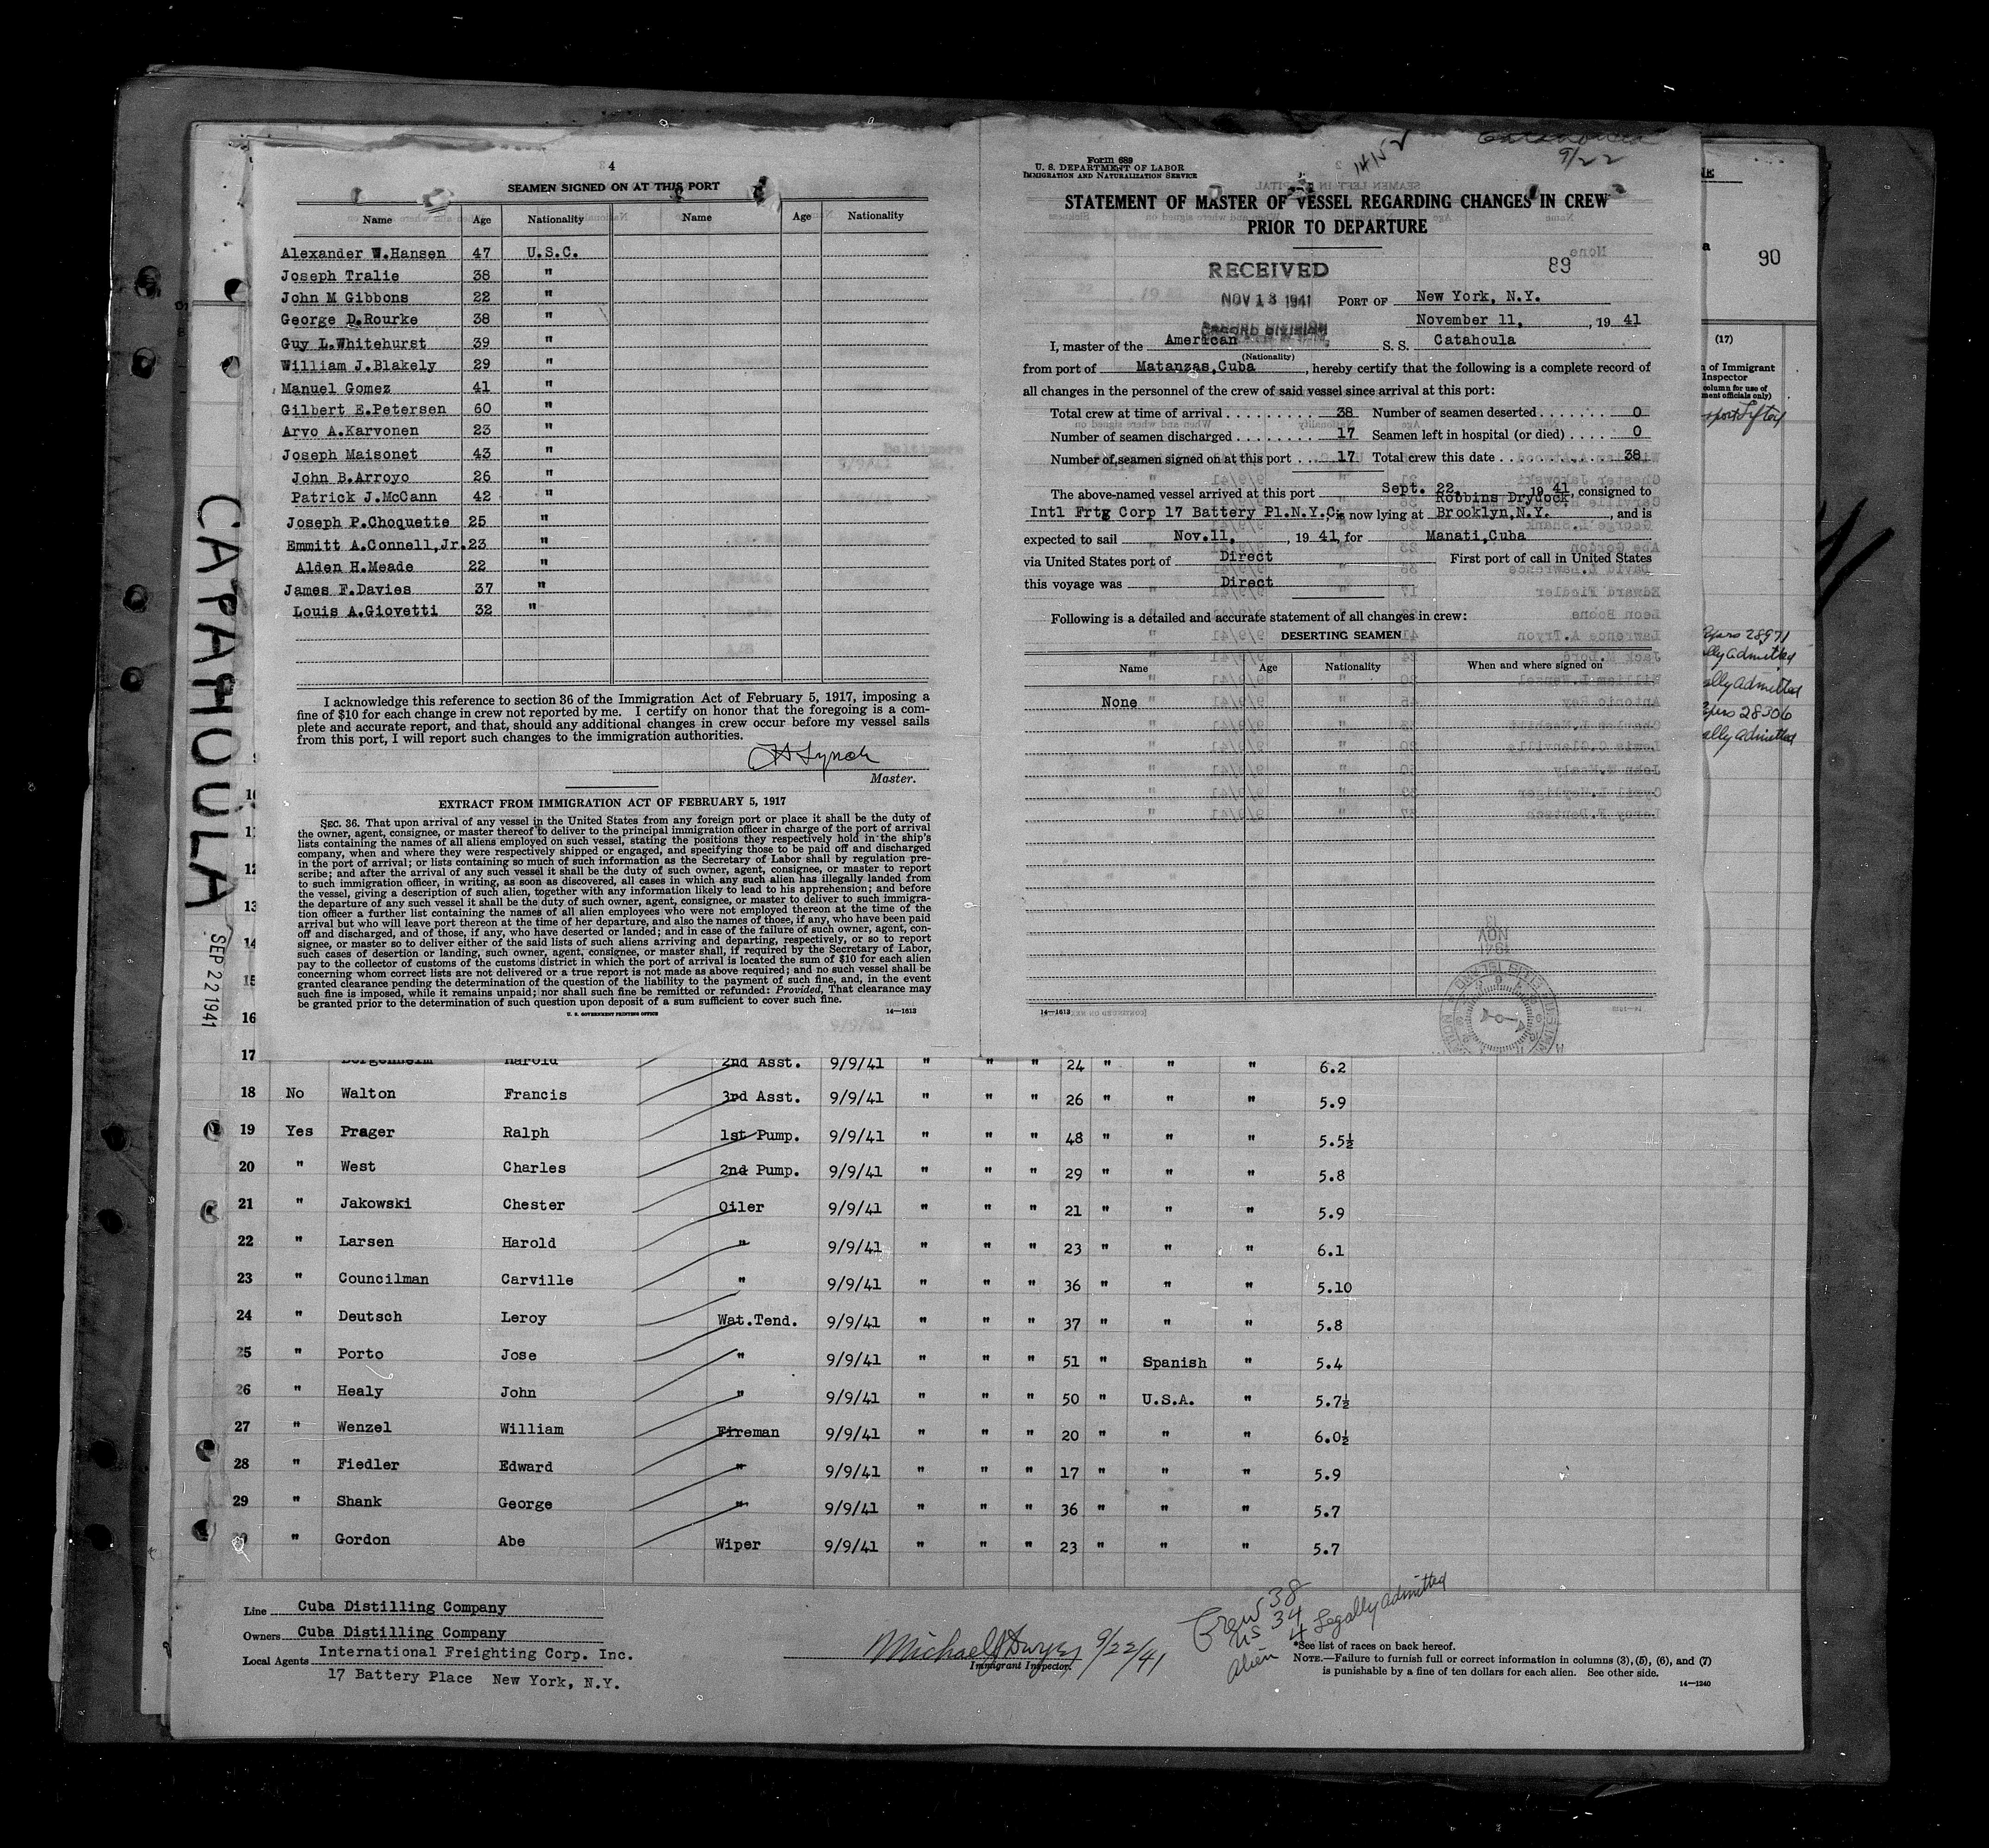 4
SEAMEN SIGNED ON AT THIS PORT
Name Age Nationality Name Age Nationality
Alexander W.Hansen 47 U.S.C.
Joseph Tralie 38 "
John M Gibbons 22 "
George D.Rourke 38 "
Guy L.Whitehurst 39 "
William J.Blakely 29 "
Manuel Gomez 41 "
Gilbert E.Petersen 60 "
Arvo A.Karvonen 23 "
Joseph Maisonet 43 "
John B.Arroyo 26 "
Patrick J.McCann 42 "
Joseph P.Choquette 25 "
Emmitt A.Connell,Jr. 23 "
Alden H.Meade 22 "
James F.Davies 37 "
Louis A.Giovetti 32 "
I acknowledge this reference to section 36 of the Immigration Act of February 5, 1917, imposing a
fine of $10 for each change in crew not reported by me. I certify on honor that the foregoing is a com-
plete and accurate report, and that, should any additional changes in crew occur before my vessel sails
from this port, I will report such changes to the immigration authorities.
Lynch
Master.
EXTRACT FROM IMMIGRATION ACT OF FEBRUARY 5, 1917
SEC. 36. That upon arrival of any vessel in the United States from any foreign port or place it shall be the duty of
the owner, agent, consignee, or master thereof to deliver to the principal immigration officer in charge of the port of arrival
lists containing the names of all aliens employed on such vessel, stating the positions they respectively hold in the ship's
company, when and where they were respectively shipped or engaged, and specifying those to be paid off and discharged
in the port of arrival; or lists containing so much of such information as the Secretary of Labor shall by regulation pre-
scribe; and after the arrival of any such vessel it shall be the duty of such owner, agent, consignee, or master to report
to such immigration officer, in writing, as soon as discovered, all cases in which any such alien has illegally landed from
the vessel, giving a description of such alien, together with any information likely to lead to his apprehension; and before
the departure of any such vessel it shall be the duty of such owner, agent, consignee, or master to deliver to such immigra-
tion officer a further list containing the names of all alien employees who were not employed thereon at the time of the
arrival but who will leave port thereon at the time of her departure, and also the names of those, if any, who have been paid
off and discharged, and of those, if any, who have deserted or landed; and in case of the failure of such owner, agent, con-
signee, or master so to deliver either of the said lists of such aliens arriving and departing, respectively, or so to report
such cases of desertion or landing, such owner, agent, consignee, or master shall, if required by the Secretary of Labor,
pay to the collector of customs of the customs district in which the port of arrival is located the sum of $10 for each alien
concerning whom correct lists are not delivered or a true report is not made as above required; and no such vessel shall be
granted clearance pending the determination of the question of the liability to the payment of such fine, and, in the event
such fine is imposed, while it remains unpaid; nor shall such fine be remitted or refunded: Provided, That clearance may
be granted prior to the determination of such question upon deposit of a sum sufficient to cover such fine.
U. S. GOVERNMENT PRINTING OFFICE 14—1613
Form 689
U. S. DEPARTMENT OF LABOR
IMMIGRATION AND NATURALIZATION SERVICE
14152
9/22
STATEMENT OF MASTER OF VESSEL REGARDING CHANGES IN CREW
PRIOR TO DEPARTURE
RECEIVED 89
NOV 13 1941 PORT OF New York, N.Y.
November 11, , 19 41
I, master of the American S. S. Catahoula
(Nationality)
from port of Matanzas,Cuba , hereby certify that the following is a complete record of
all changes in the personnel of the crew of said vessel since arrival at this port:
Total crew at time of arrival 38 Number of seamen deserted 0
Number of seamen discharged 17 Seamen left in hospital (or died) 0
Number of seamen signed on at this port 17 Total crew this date 38
The above-named vessel arrived at this port Sept. 22, 19 41, consigned to
Robbins Drydock
Intl Frtg Corp 17 Battery Pl.N.Y.C. is now lying at Brooklyn,N.Y. , and is
expected to sail Nov.11, , 19 41, for Manati,Cuba
via United States port of Direct First port of call in United States
this voyage was Direct
Following is a detailed and accurate statement of all changes in crew:
DESERTING SEAMEN
Name Age Nationality When and where signed on
None
14—1613
NOV 13 1941
90
(17)
of Immigrant
Inspector
column for use of
officials only)
28971
ally admitted
ally admitted
28306
ally admitted
CAPAHOULA
SEP 22 1941
10
11
12
13
14
15
16
17 Borgenheim Harold 2nd Asst. 9/9/41 " " " 24 " " " 6.2
18 No Walton Francis 3rd Asst. 9/9/41 " " " 26 " " " 5.9
19 Yes Prager Ralph 1st Pump. 9/9/41 " " " 48 " " " 5.5½
20 " West Charles 2nd Pump. 9/9/41 " " " 29 " " " 5.8
21 " Jakowski Chester Oiler 9/9/41 " " " 21 " " " 5.9
22 " Larsen Harold " 9/9/41 " " " 23 " " " 6.1
23 " Councilman Carville " 9/9/41 " " " 36 " " " 5.10
24 " Deutsch Leroy Wat.Tend. 9/9/41 " " " 37 " " " 5.8
25 " Porto Jose " 9/9/41 " " " 51 " Spanish " 5.4
26 " Healy John " 9/9/41 " " " 50 " U.S.A. " 5.7½
27 " Wenzel William Fireman 9/9/41 " " " 20 " " " 6.0½
28 " Fiedler Edward " 9/9/41 " " " 17 " " " 5.9
29 " Shank George " 9/9/41 " " " 36 " " " 5.7
30 " Gordon Abe Wiper 9/9/41 " " " 23 " " " 5.7
Line Cuba Distilling Company
Owners Cuba Distilling Company
Local Agents International Freighting Corp. Inc.
17 Battery Place New York, N.Y.
Michael J Dwyer 9/22/41
Immigrant Inspector.
Crew 38
US 34
Alien 4 Legally admitted
*See list of races on back hereof.
NOTE.—Failure to furnish full or correct information in columns (3), (5), (6), and (7)
is punishable by a fine of ten dollars for each alien. See other side.
14—1240